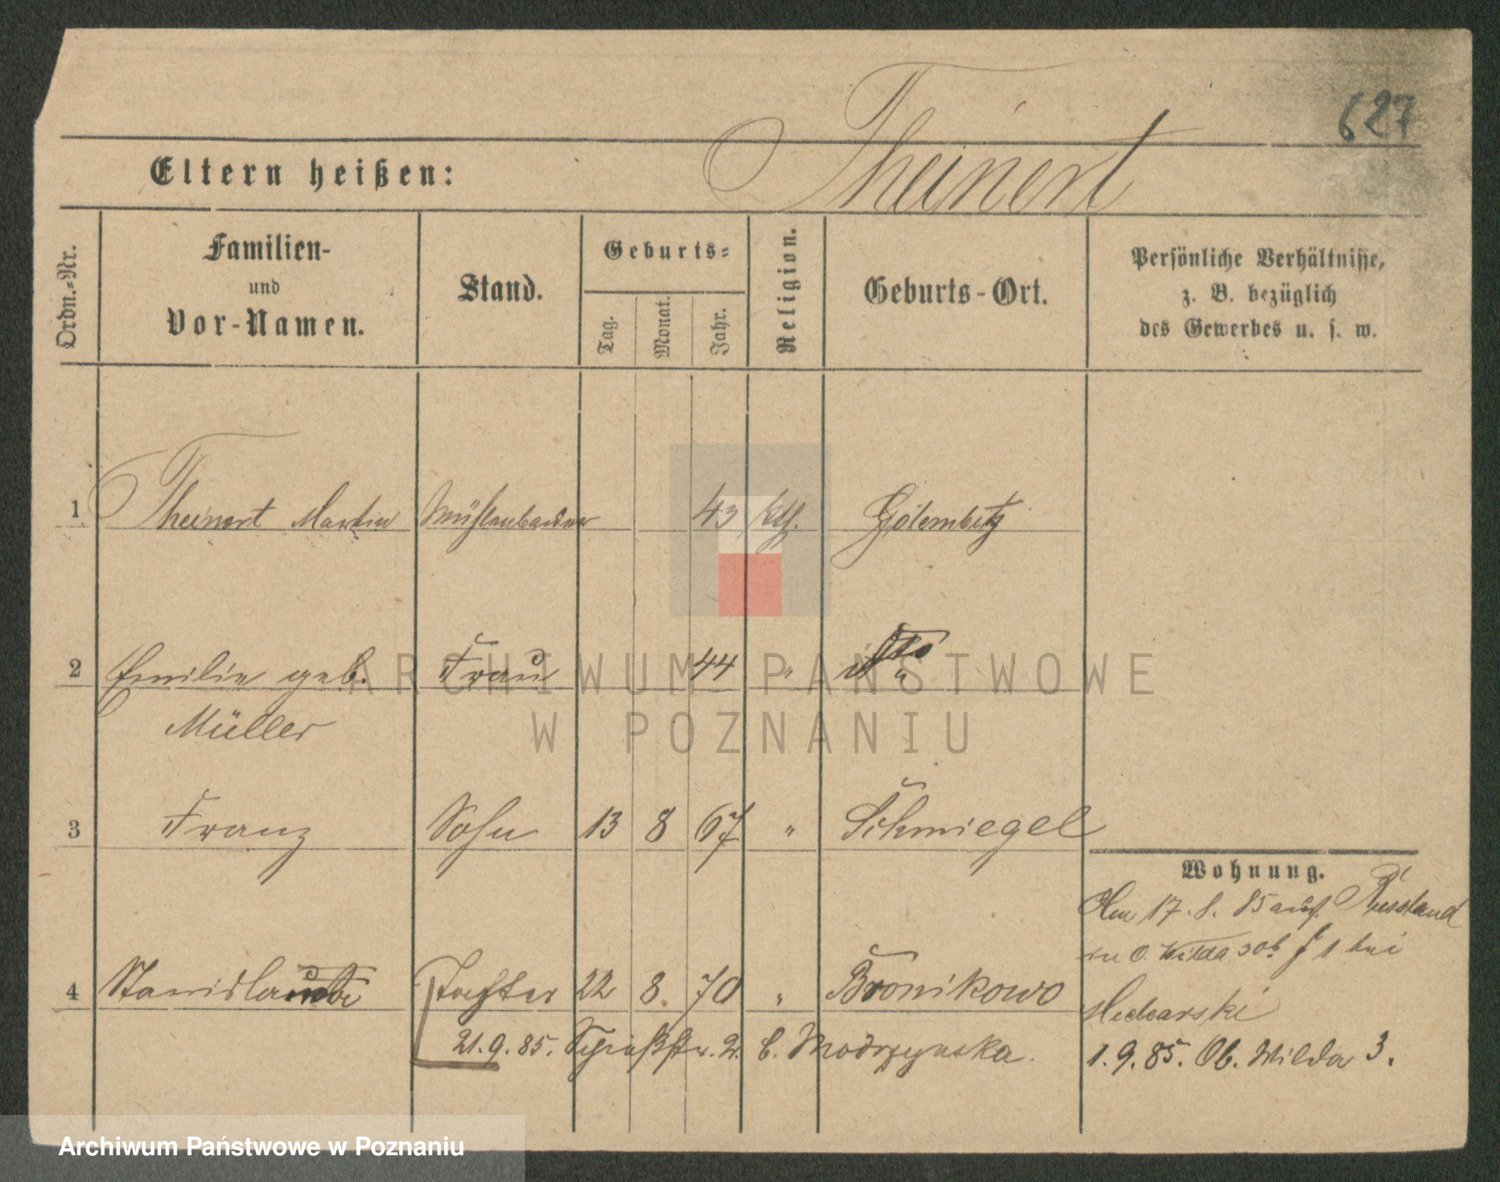 627
Theinert
Eltern heißen:
Ordn.-Nr.
Familien-
und
Vor-Namen.
Stand.
Geburts-
Tag.
Monat.
Jahr.
Religion.
Geburts-Ort.
Persönliche Verhältnisse,
z. B. bezüglich
des Gewerbes u. s. w.
1 Theinert Martin Mühlenbauer 43 kth. Golembitz
2 Emilie geb. Frau 44 "
Müller
3 Franz Sohn 13 8 67 " Schmiegel
Wohnung.
Am 17. 8. 85 aus Russland
in O. Wilda
4 Tochter 22 8. 70 " Bronikowo
21.9.85. Schießstr. 2. b. Modrzynska.
1.9.85. Ob. Wilda 3.
ARCHIWUM PAŃSTWOWE
W POZNANIU
Archiwum Państwowe w Poznaniu